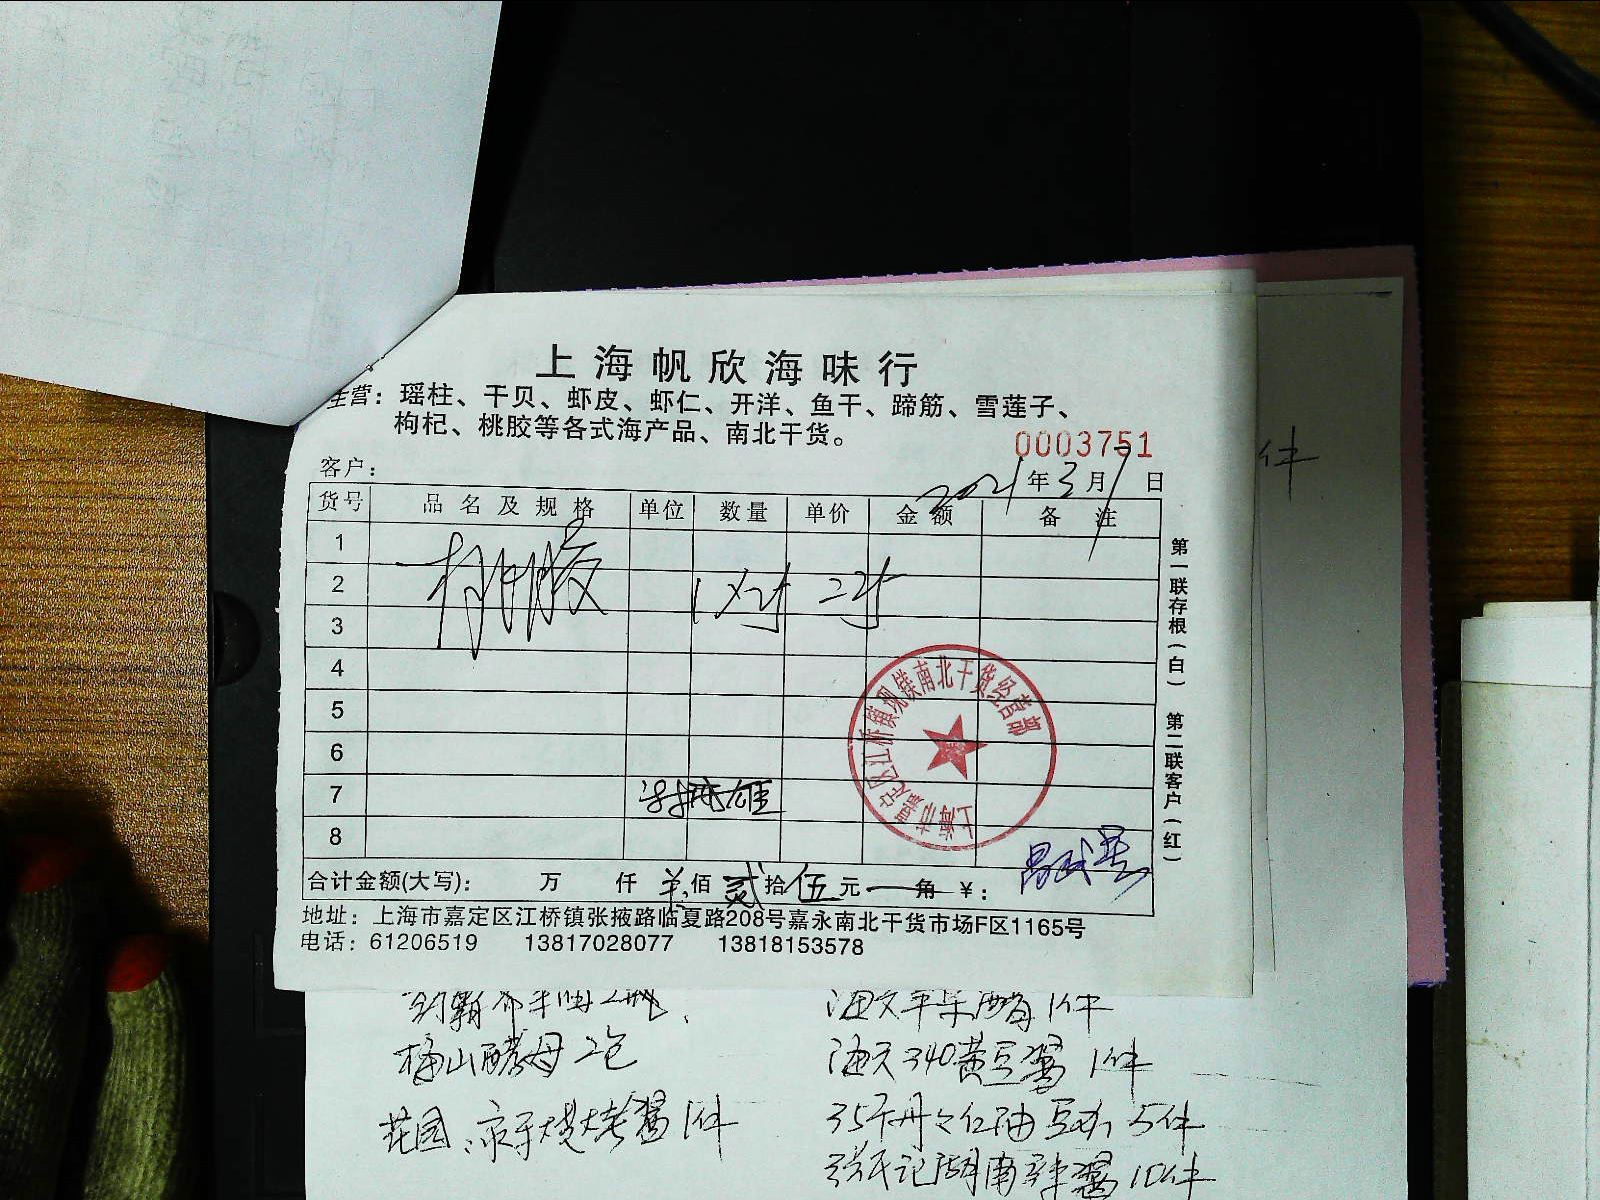 上海帆欣海味行
主营：瑶柱、干贝、虾皮、虾仁、开洋、鱼干、蹄筋、雪莲子、
枸杞、桃胶等各式海产品、南北干货。
0003751
客户：
2021年3月7日
货号 品名及规格 单位 数量 单价 金额 备注
1
2 桃胶
3
4
5
6
7
8
上海市嘉定区江桥镇现镁南北干货经营部
合计金额(大写)： 万 仟 佰 贰拾伍元 角 ￥：
地址：上海市嘉定区江桥镇张掖路临夏路208号嘉永南北干货市场F区1165号
电话：61206519 13817028077 13818153578
第一联存根(白) 第二联客户(红)
件
酵母2包
花园 烧烤酱1件
海天苹果醋1件
海天340黄豆酱 1件
5件
湖南辣酱10件